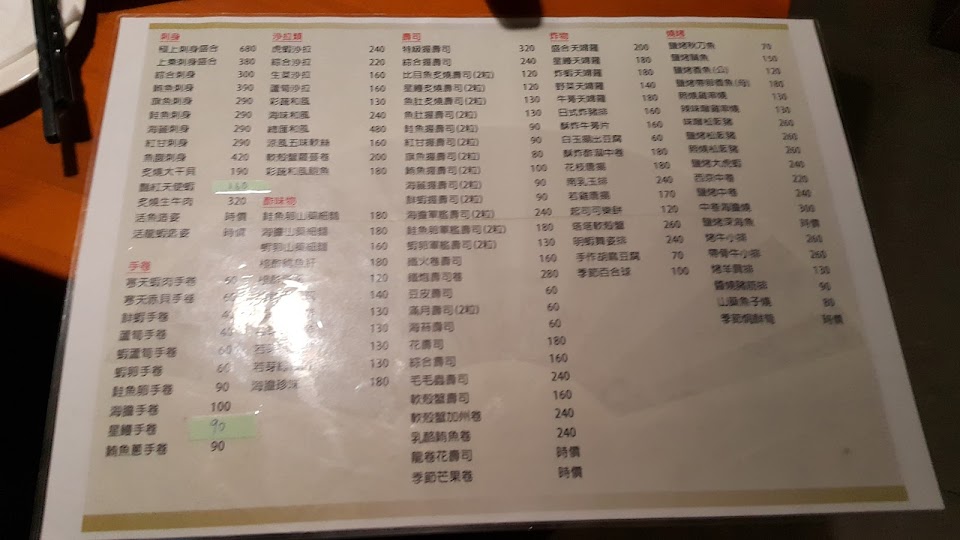 刺身
極上刺身盛合 680
上乘刺身盛合 380
綜合刺身 300
鮪魚刺身 390
旗魚刺身 290
鮭魚刺身 290
海鱺刺身 290
紅甘刺身 290
魚腹刺身 420
炙燒大干貝 190
豔紅天使蝦 160
炙燒生牛肉 320
活魚造姿 時價
活龍蝦造姿 時價
手卷
寒天蝦肉手卷 60
寒天赤貝手卷
鮮蝦手卷
蘆筍手卷
蝦蘆筍手卷 60
蝦卵手卷 60
鮭魚卵手卷 90
海膽手卷 100
星鰻手卷 90
鮪魚蔥手卷 90
沙拉類
虎蝦沙拉 240
綜合沙拉 220
生菜沙拉 160
蘆筍沙拉 160
彩蔬和風 130
海味和風 240
總匯和風 480
涼風五味軟絲 160
軟殼蟹羅蔓卷 200
彩蔬和風鮑魚 180
酢味物
鮭魚卵山藥細麵 180
海膽山藥細麵 180
蝦卵山藥細麵 160
180
120
140
130
130
130
海膽珍味 180
壽司
特級握壽司 320
綜合握壽司 240
比目魚炙燒壽司(2粒) 120
星鰻炙燒壽司(2粒) 120
魚肚炙燒壽司(2粒) 130
魚肚握壽司(2粒) 130
鮭魚握壽司(2粒) 90
紅甘握壽司(2粒) 90
旗魚握壽司(2粒) 80
鮪魚握壽司(2粒) 100
海鱺握壽司(2粒) 90
鮮蝦握壽司(2粒) 90
海膽軍艦壽司(2粒) 240
鮭魚卵軍艦壽司(2粒) 180
蝦卵軍艦壽司(2粒) 130
鐵火卷壽司 160
鐵炮壽司卷 280
豆皮壽司 60
滿月壽司(2粒) 60
海苔壽司 60
花壽司 180
綜合壽司 160
毛毛蟲壽司 240
軟殼蟹壽司 160
軟殼蟹加州卷 240
乳酪鮪魚卷 240
龍卷花壽司 時價
季節芒果卷 時價
炸物
盛合天婦羅 200
星鰻天婦羅 180
炸蝦天婦羅 180
野菜天婦羅 140
牛蒡天婦羅 180
日式炸豬排 160
酥炸牛蒡片 160
白玉揚出豆腐 60
酥炸酢溜中卷 180
花枝唐揚 180
南乳玉排 240
若雞唐揚 170
起司可樂餅 120
塔塔軟殼蟹 260
明蝦舞姿排 240
手作胡麻豆腐 70
季節百合球 100
燒烤
鹽烤秋刀魚 70
鹽烤鯖魚 130
鹽烤香魚(公) 120
鹽烤帶卵香魚(母) 180
照燒雞串燒 130
辣味雞串燒 130
味噌松阪豬 260
鹽烤松阪豬 260
照燒松阪豬 260
鹽烤大虎蝦 240
西京中卷 220
鹽烤中卷 240
中卷海膽燒 300
鹽烤深海魚 時價
烤牛小排 260
帶骨牛小排 260
烤羊肩排 130
醬燒豬肋排 90
山藥魚子燒 80
季節焗鮮筍 時價